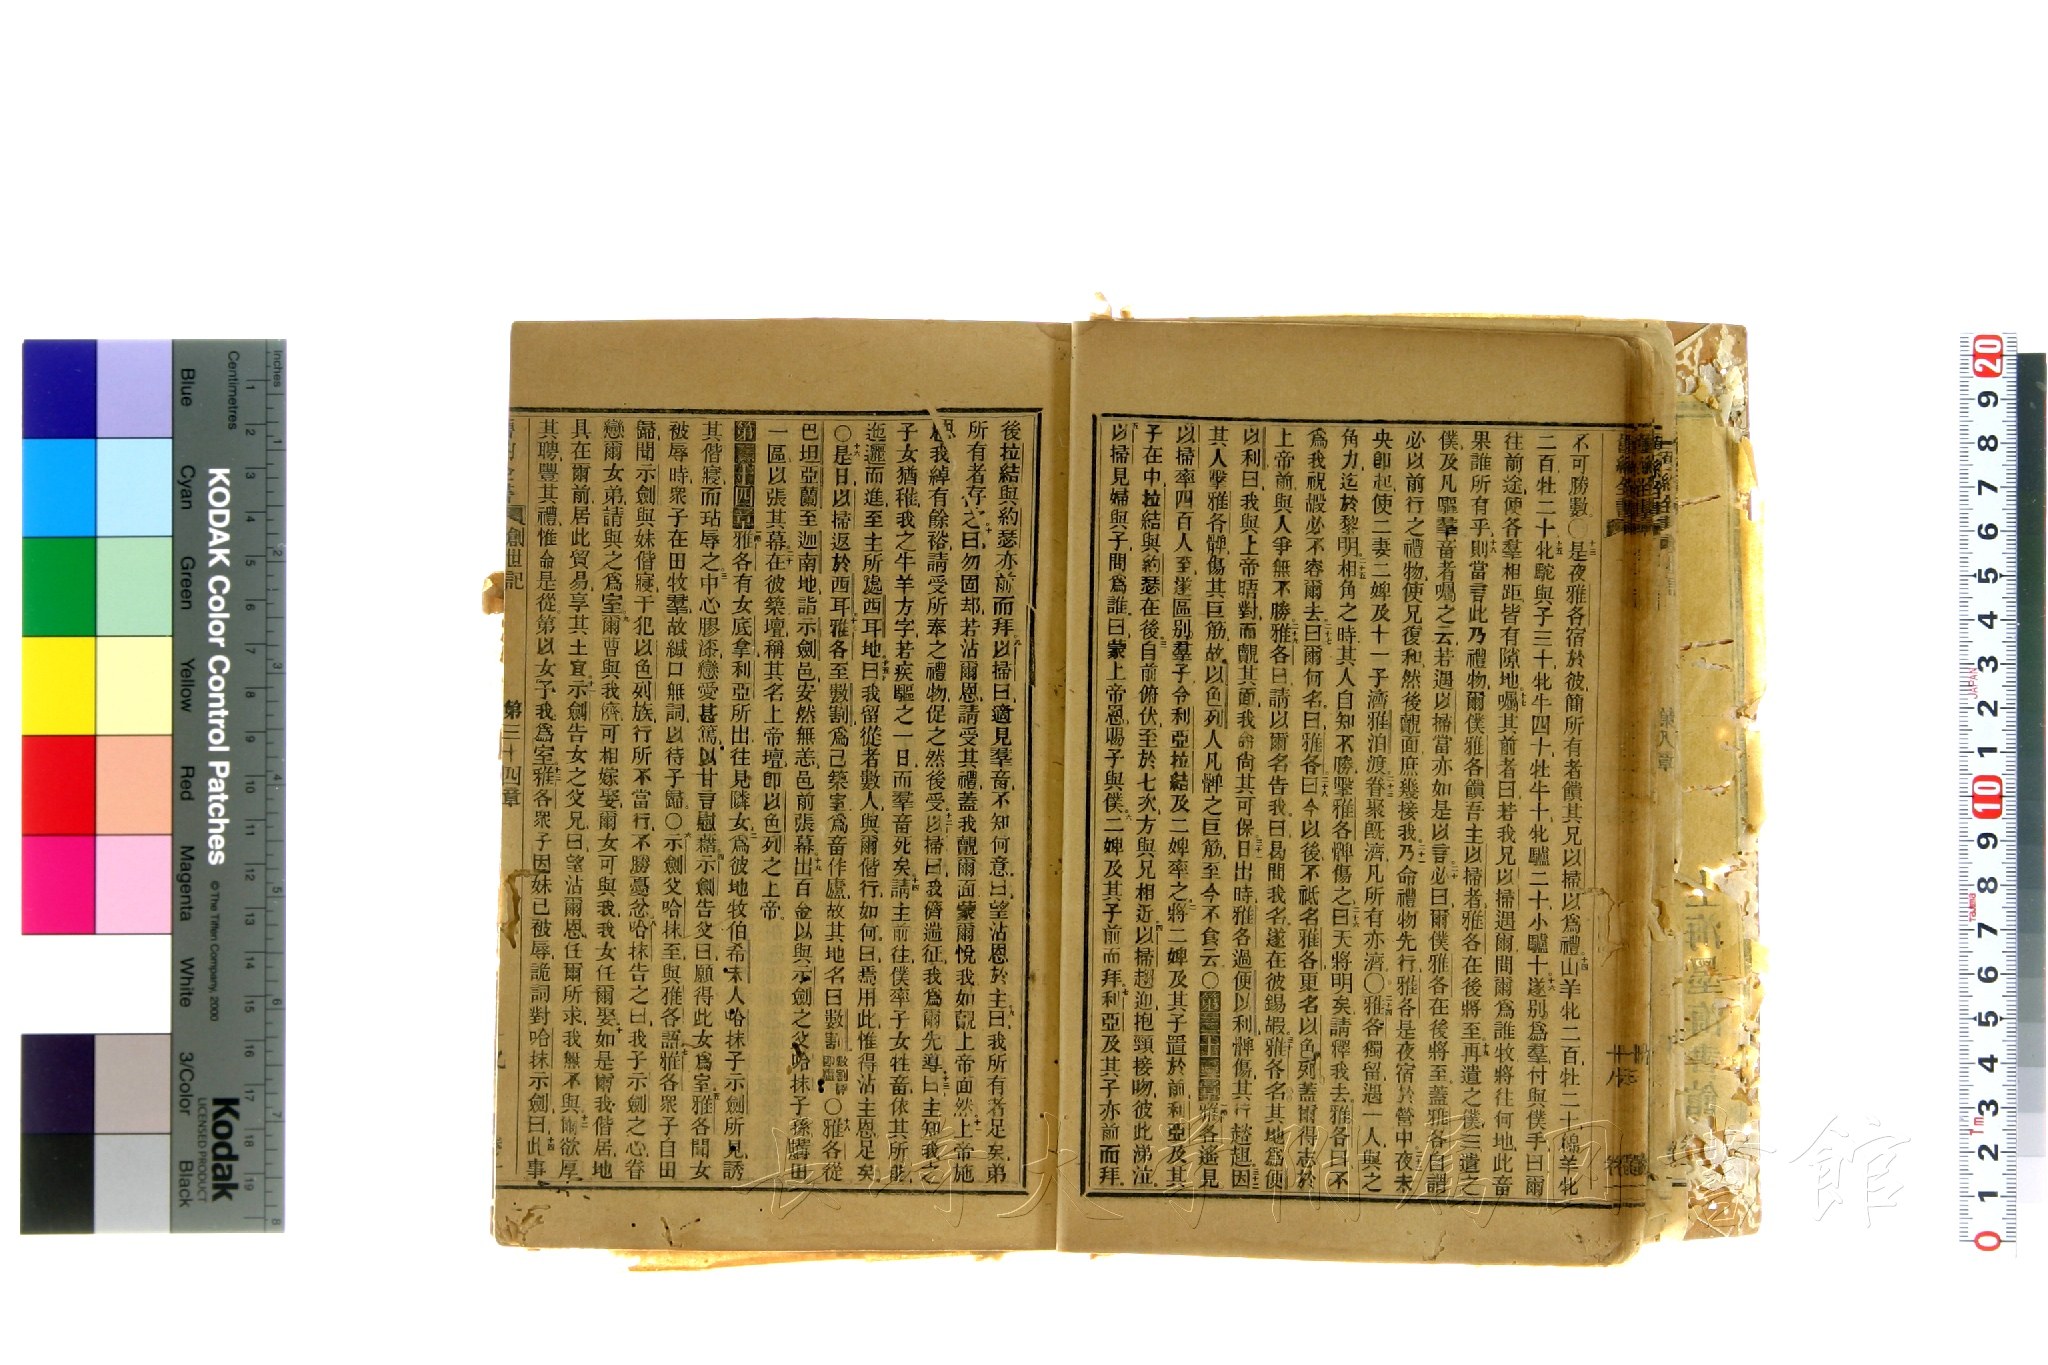 不可勝數〇是夜雅各宿於彼簡所有者餽其兄以掃以爲禮山羊牝二百牡二十綿羊牝
二百牡二十牝駝與子三十牝牛四十牡牛十牝驢二十小驢十遂別爲羣付與僕手曰爾
往前途使各羣相距皆有隙地囑其前者曰若我兄以掃遇爾問爾爲誰牧將往何地此畜
果誰所有乎則當言此乃禮物爾僕雅各餽吾主以掃者雅各在後將至再遣之僕三遣之
僕及凡驅羣畜者囑之云若遇以掃當亦如是以言必曰爾僕雅各在後將至蓋雅各自謂
必以前行之禮物使兄復和然後覿面庶幾接我乃命禮物先行雅各是夜宿於營中夜未
央卽起使二妻二婢及十一子濟雅泊渡眷聚旣濟凡所有亦濟〇雅各獨留遇一人與之
角力迄於黎明相角之時其人自知不勝擊雅各髀傷之曰天將明矣請釋我去雅各曰不
爲我祝嘏必不容爾去曰爾何名曰雅各曰今以後不祗名雅各更名以色列蓋爾得志於
上帝前與人爭無不勝雅各曰請以爾名告我曰曷問我名遂在彼錫嘏雅各名其地爲便
以利曰我與上帝晤對而覿其面我命尙其可保日出時雅各過便以利髀傷其行趑趄因
其人擊雅各髀傷其巨筋故以色列人凡髀之巨筋至今不食云〇第三十三章雅各遙見
以掃率四百人至遂區別羣子令利亞拉結及二婢率之將二婢及其子置於前利亞及其
子在中拉結與約瑟在後自前俯伏至於七次方與兄相近以掃趨迎抱頸接吻彼此涕泣
以掃見婦與子問爲誰曰蒙上帝恩賜子與僕二婢及其子前而拜利亞及其子亦前而拜
後拉結與約瑟亦前而拜以掃曰適見羣畜不知何意曰望沾恩於主曰我所有者足矣弟
所有者存之曰勿固却若沾爾恩請受其禮蓋我覿爾面蒙爾悅我如覿上帝面然上帝施
恩我綽有餘裕請受所奉之禮物促之然後受以掃曰我儕遄征我爲爾先導曰主知我之
子女猶稚我之牛羊方字若疾驅之一日而羣畜死矣請主前往僕率子女牲畜依其所能
迤邐而進至主所處西耳地曰我留從者數人與爾偕行如何曰焉用此惟得沾主恩足矣
〇是日以掃返於西耳雅各至數割爲己築室爲畜作廬故其地名曰數割數割譯卽廬〇雅各從
巴坦亞蘭至迦南地詣示劍邑安然無恙邑前張幕出百金以與示劍之父哈抹子孫購田
一區以張其幕在彼築壇稱其名上帝壇卽以色列之上帝
第三十四章雅各有女底拿利亞所出往見隣女爲彼地牧伯希未人哈抹子示劍所見誘
其偕寢而玷辱之中心膠漆戀愛甚篤以甘言慰藉示劍告父曰願得此女爲室雅各聞女
被辱時衆子在田牧羣故緘口無詞以待子歸〇示劍父哈抹至與雅各語雅各衆子自田
歸聞示劍與妹偕寢干犯以色列族行所不當行不勝憂忿哈抹告之曰我子示劍之心眷
戀爾女弟請與之爲室爾曹與我儕可相嫁娶爾女可與我我女任爾娶如是爾我偕居地
具在爾前居此貿易享其土宜示劍告女之父兄曰望沾爾恩任爾所求我無不與爾欲厚
其聘豐其禮惟命是從第以女予我爲室雅各衆子因妹已被辱詭詞對哈抹示劍曰此事
創世記
第三十四章
上海
長崎大学附属図書館
KODAK Color Control Patches
© The Tiffen Company, 2000
Kodak
LICENSED PRODUCT
Inches
Centimetres
Blue
Cyan
Green
Yellow
Red
Magenta
White
3/Color
Black
JAPAN